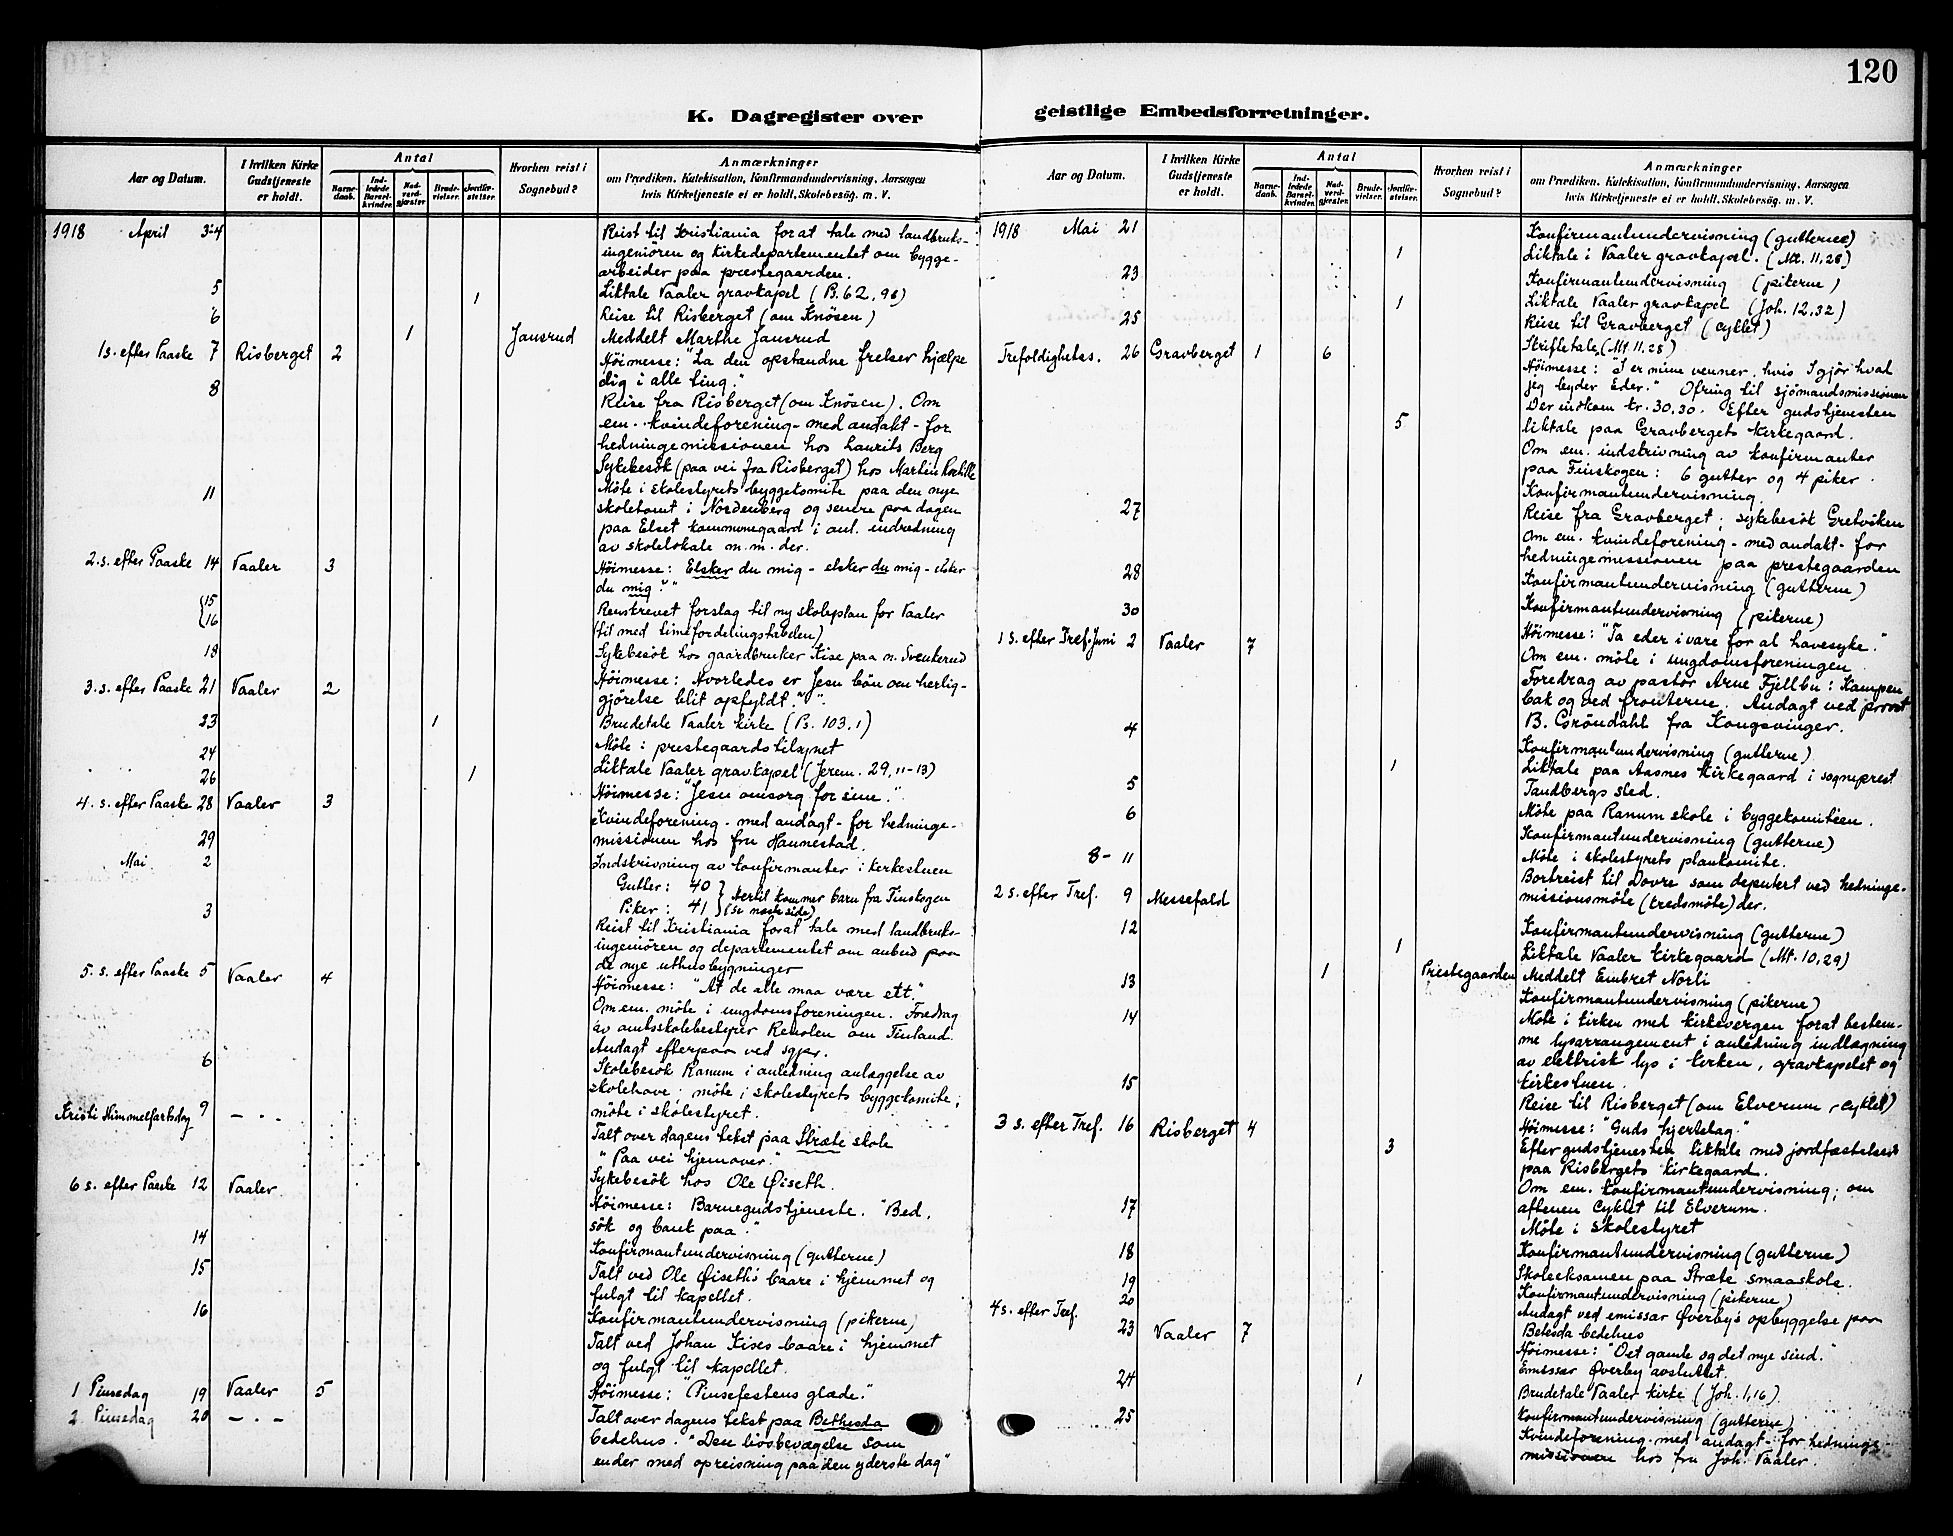 120
K. Dagregister over
Aar og Datum.
I hvilken Kirke
Gudstjeneste
er holdt.
Antal
Barne-
daab.
Ind-
ledede
Barsel-
kvinder.
Nad-
verd-
gjæster.
Brude-
vielser.
Jordfæ-
stelser.
Hvorhen reist i
Sognebud?
Anmærkninger
om Prædiken, Katekisation, Konfirmandundervisning, Aarsagen
hvis Kirketjeneste ei er holdt, Skolebesög. m. V.
1918 April 3-4 Reist til Kristiania forat tale med landbruks-
ingeniören og kirkedepartementet om bygge-
arbeider paa præstegaarden.
5 1 Liktale Vaaler gravkapel (B. 62, 96)
6 Reise til Risberget (om Knösen)
1 Jansrud Meddelt Marthe Jansrud
1 s. efter Paaske 7 Risberget 2 Höimesse: "La den opstandne frelser hjælpe
dig i alle ting."
8 Reise fra Risberget (om Knösen). Om
em. kvindeforening - med andakt - for
hedningemissionen hos Laurits Berg
Sykebesök (paa vei fra Risberget) hos Martin
11 Möte i skolestyrets byggekomite paa den nye
skoletomt i Nordenberg og senere paa dagen
paa Elset kommunegaard i anl. indredning
av skolelokale m.m. der.
2. s. efter Paaske 14 Vaaler 3 Höimesse: Elsker du mig - elsker du mig - elsker
du mig?"
15
16 Renskrevet forslag til ny skoleplan for Vaaler
(til med timefordelingstabelen)
18 Sykebesök hos gaardbruker Kise paa n. Svenkerud
3. s. efter Paaske 21 Vaaler 2 Höimesse: Hvorledes er Jesu bön om herlig-
gjörelse blit opfyldt?"
23 1 Brudetale Vaaler kirke (Ps. 103, 1)
24 Möte i prestegaardstilsynet
26 1 Liktale Vaaler gravkapel (Jerem. 29, 11-13)
4. s. efter Paaske 28 Vaaler 3 Höimesse: "Jesu omsorg for sine."
29 Kvindeforening - med andagt - for hedninge-
missionen hos fru Hannestad.
Mai 2 Indskrivning av konfirmanter i kirkestuen
Gutter: 40 } hertil kommer barn fra Finskogen
Piker: 41 } (se næste side)
3 Reist til Kristiania forat tale med landbruks-
ingeniören og departementet om anbud paa
de nye uthusbygninger
5. s. efter Paaske 5 Vaaler 4 Höimesse: "At de alle maa være ett."
Om em. möte i ungdomsforeningen. Foredrag
av amtsskolebestyrer Remolen om Finland.
Andagt efterpaa ved sgpr.
6 Skolebesök Ranum i anledning anlæggelse av
skolehave; möte i skolestyrets byggekomite;
möte i skolestyret.
Kristi Himmelfartsdag 9 — . . Talt over dagens tekst paa Stræte skole
"Paa vei hjemover."
Sykebesök hos Ole Øiseth.
6 s. efter Paaske 12 Vaaler. Höimesse: Barnegudstjeneste. "Bed,
sök og bank paa."
14 Konfirmantundervisning (gutterne)
15 Talt ved Ole Øiseth's baare i hjemmet og
fulgt til kapellet.
16 Konfirmantundervisning (pikerne)
Talt ved Johan Kises baare i hjemmet
og fulgt til kapellet.
1 Pinsedag 19 Vaaler 5 Höimesse: "Pinsefestens glæde."
2. Pinsedag 20 — . — Talt over dagens tekst paa Bethesda
bedehus. "Den livsbevægelse som
ender med opreisning paa den yderste dag"
geistlige Embedsforretninger.
Aar og Datum.
I hvilken Kirke
Gudstjeneste
er holdt.
Antal
Barne-
daab.
Ind-
ledede
Barsel-
kvinder.
Nad-
verd-
gjæster.
Brude-
vielser.
Jordfæ-
stelser.
Hvorhen reist i
Sognebud?
Anmærkninger
om Prædiken, Katekisation, Konfirmandundervisning, Aarsagen
hvis Kirketjeneste ei er holdt, Skolebesög. m. V.
1918 Mai 21 Konfirmantundervisning (gutterne)
1 Liktale i Vaaler gravkapel. (Mt. 11, 28)
23 Konfirmantundervisning (pikerne)
1 Liktale Vaaler gravkapel (Joh. 12, 32)
25 Reise til Gravberget (cyklet)
Trefoldighetss. 26 Gravberget 1 6 Skriftetale (Mt 11. 28)
Höimesse: "I er mine venner, hvis I gjör hvad
jeg byder Eder." Ofring til sjömandsmissionen
Der indkom kr. 30,30. Efter gudstjenesten
5 liktale paa Gravbergets kirkegaard.
Om em. indskrivning av konfirmanter
paa Finskogen: 6 gutter og 4 piker.
Konfirmantundervisning.
27 Reise fra Gravberget; sykebesök Gretviken
Om em. kvindeforening - med andakt - for
hedningemissionen paa prestegaarden
28 Konfirmantundervisning (gutterne)
30 Konfirmantundervisning (pikerne)
1 s. efter Tref. Juni 2 Vaaler 7 Höimesse: "Ta eder i vare for al havesyke."
Om em. möte i ungdomsforeningen
Foredrag av pastor Arne Fjellbu: Kampen
bak og ved fronterne. Andagt ved provst
B. Gröndahl fra Kongsvinger.
4 Konfirmantundervisning (gutterne)
1 Liktale paa Aasnes kirkegaard i sogneprest
Tandbergs sted.
5 Möte paa Ranum skole i byggekomitéen.
6 Konfirmantundervisning (gutterne)
Möte i skolestyrets plankomite.
8 - 11 Bortreist til Dovre som deputert ved hedninge-
missionsmöte (kredsmöte) der.
2 s. efter Tref. 9 Messefald
12 Konfirmantundervisning (gutterne)
1 Liktale Vaaler kirkegaard (Mt. 10, 29)
1 Prestegaarden Meddelt Embret Norli
13 Konfirmantundervisning (pikerne)
14 Möte i kirken med kirkevergen forat bestem-
me lysarrangement i anledning indlægning
av elektrisk lys i kirken, gravkapelet og
kirkestuen.
15 Reise til Risberget (om Elverum - cyklet)
3 s. efter Tref. 16 Risberget 4 Höimesse: "Guds hjertelag."
3 Efter gudstjenesten liktale med jordfæstelse
paa Risbergets kirkegaard.
Om em. konfirmantundervisning; om
aftenen cyklet til Elverum.
17 Möte i skolestyret
18 Konfirmantundervisning (gutterne)
19 Skoleeksamen paa Stræte smaaskole.
20 Konfirmantundervisning (pikerne)
Andagt ved emissær Øverby's opbyggelse paa
Betesda bedehus
4 s. efter Tref. 23 Vaaler 7 Höimesse: "Det gamle og det nye sind."
Emissær Øverby avsluttet.
24 1 Brudetale Vaaler kirke (Joh. 1, 16)
25 Konfirmantundervisning (gutterne)
Kvindeforening - med andagt - for hedninge
missionen hos fru Joh. Vaaler.